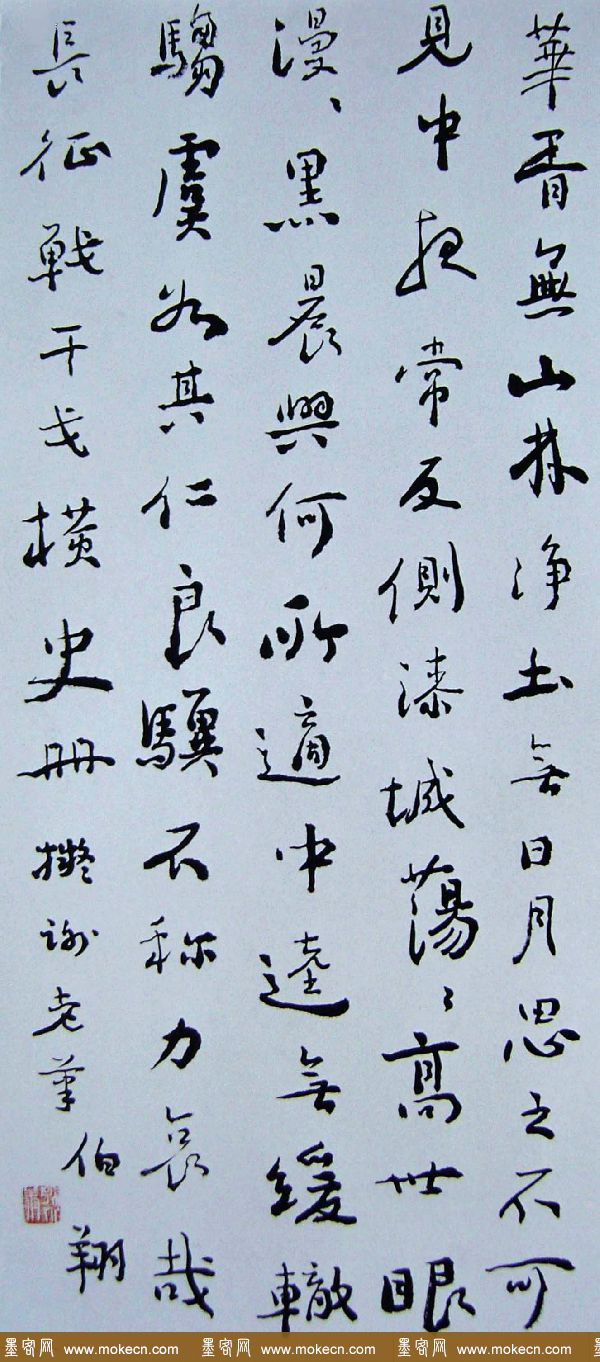 華胥無山林净土無日月思之不可
見中夜常反側漆城蕩〻高世眼
漫〻黑晨興何所適中逵無緩轍
騶虞為其仁良驥不称力哀哉
長征戰干戈横史冊擬謝老筆
伯翔
墨客网 www.mokecn.com 墨客网 www.mokecn.com 墨客网 www.mokecn.com